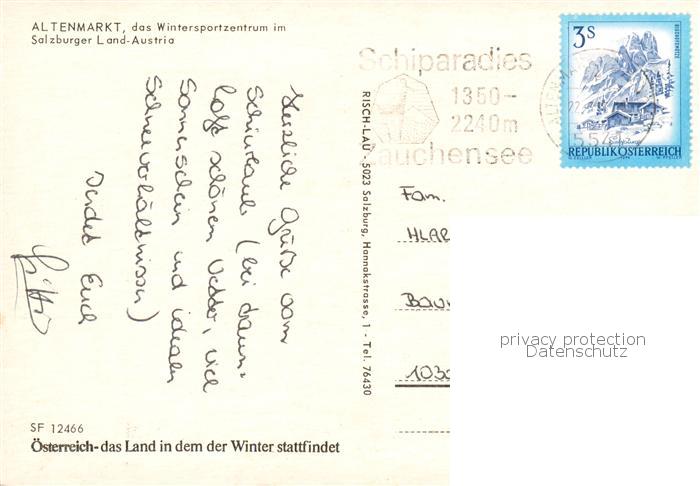 ALTENMARKT, das Wintersportzentrum im
Salzburger Land-Austria
Herzliche Grüße vom
Schiurlaub (bei traum-
haft schönen Wetter, viel
Sonnenschein und idealen
Schneeverhältnissen)
sendet Euch
SF 12466
Österreich-das Land in dem der Winter stattfindet
RISCH-LAU - 5023 Salzburg, Hannakstrasse, 1 - Tel. 76430
Schiparadies
1350-
2240m
Zauchensee
3S
REPUBLIK ÖSTERREICH
Fam.
1030
privacy protection
Datenschutz